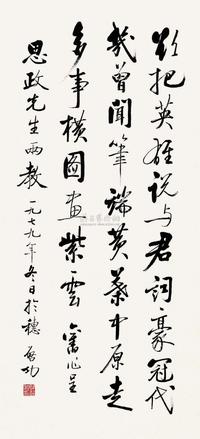 欲把英雄说与君词豪冠代
几曾闻笔端黄叶中原走
多事横图画紫云 旧作呈
思政先生两教 一九七九年冬日于穗 启功